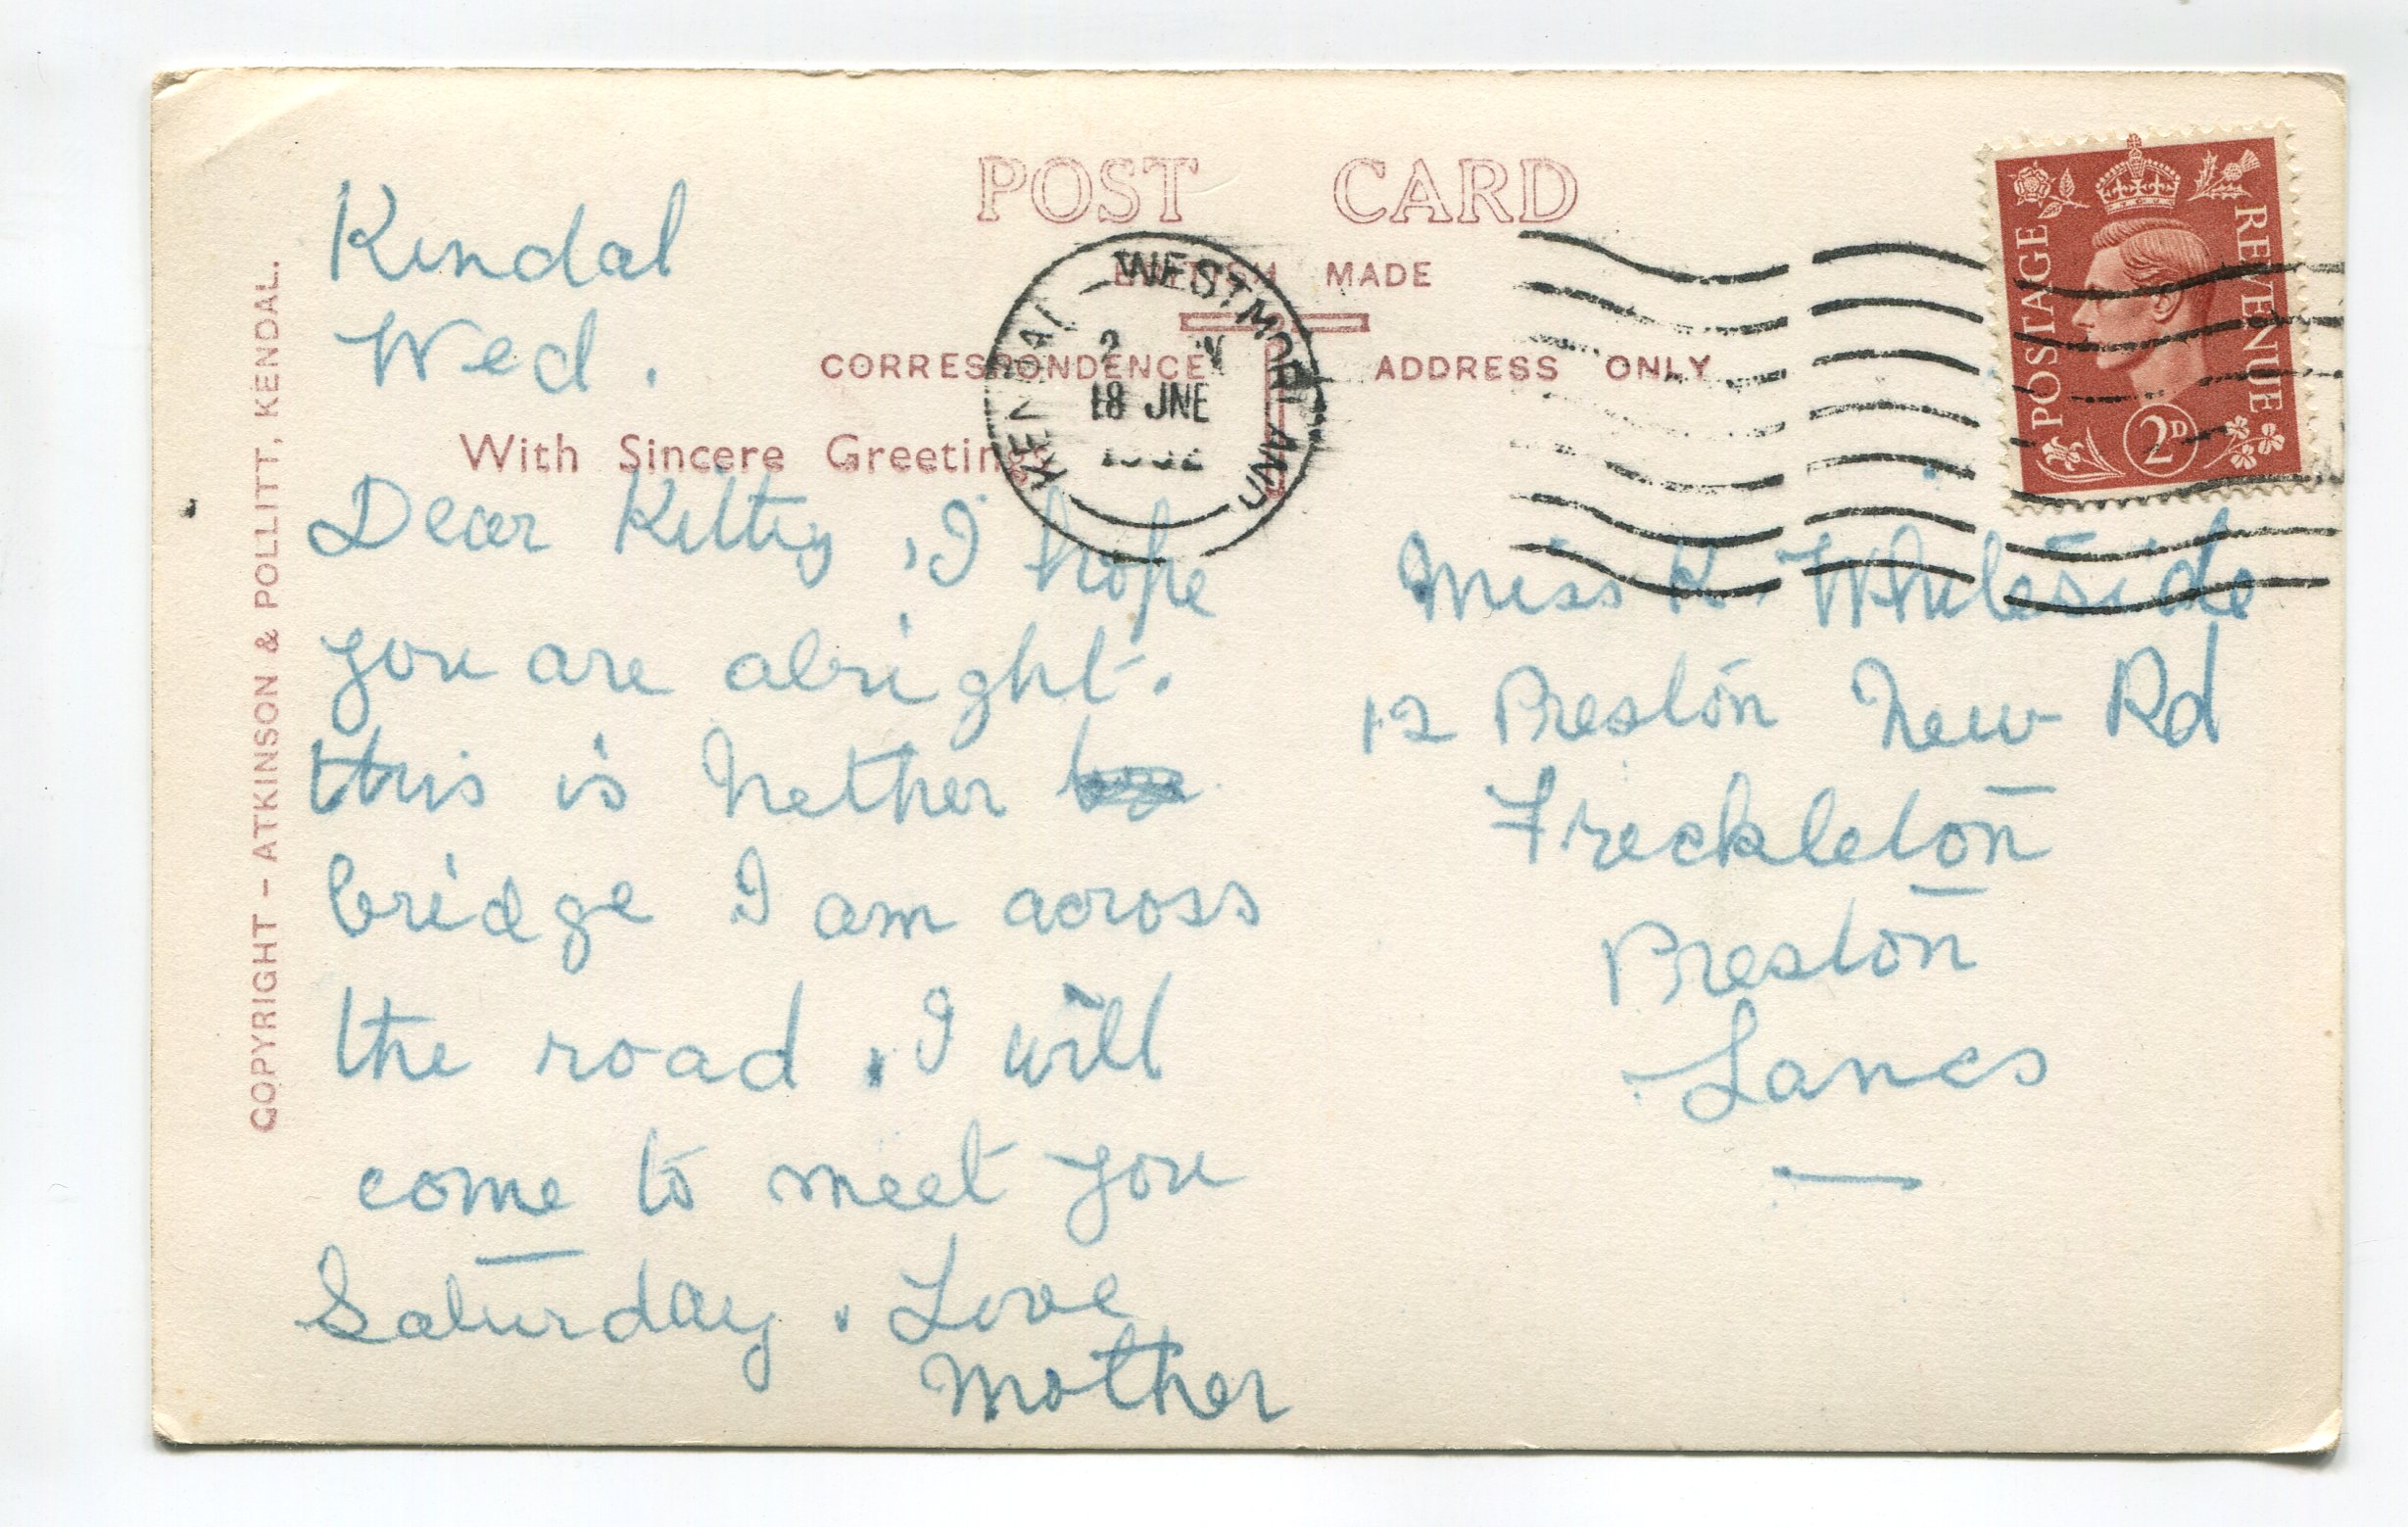 POST CARD
BRITISH MADE
CORRESPONDENCE
ADDRESS ONLY
With Sincere Greetings
COPYRIGHT – ATKINSON & POLLITT, KENDAL.
KENDAL WESTMORLAND
18 JNE
1952
POSTAGE
REVENUE
2D
Kendal
Wed.
Dear Kitty, I hope
you are alright.
this is Nether
bridge I am across
the road. I will
come to meet you
Saturday. Love
Mother
Miss K. Whiteside
12 Preston New Rd
Freckleton
Preston
Lancs